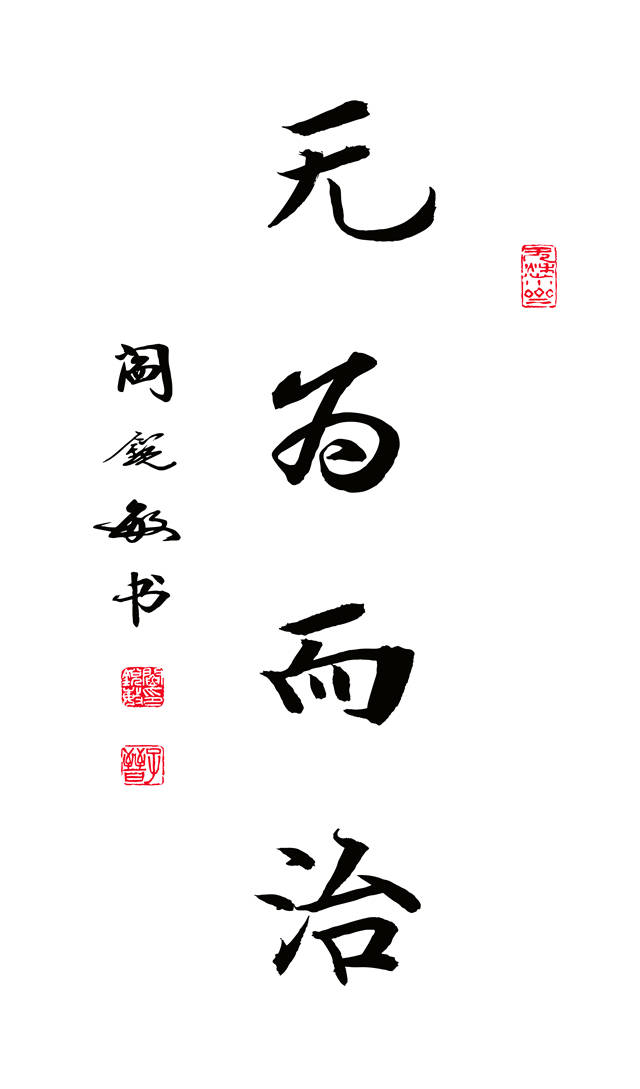 无为而治
阎锐敏书